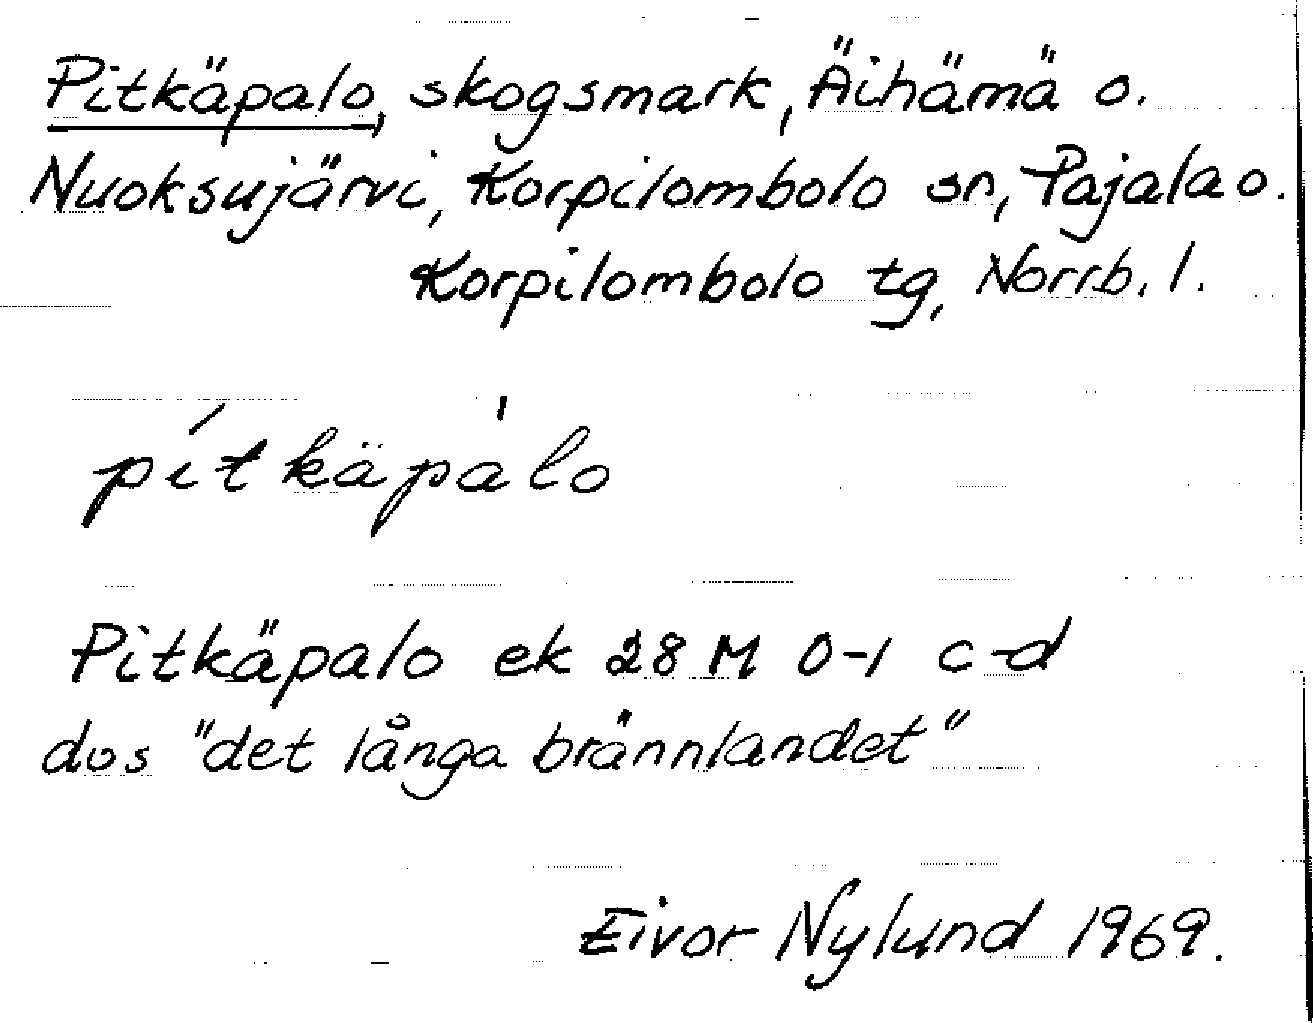 Pitkäpalo, skogsmark, Äihämä o.
Nuoksujärvi, Korpilombolo sn, Pajala o.
Korpilombolo tg, Norrb. l.
pítkäpàlo
Pitkäpalo ek 28 M 0-1 c-d
dvs "det långa brännlandet"
Eivor Nylund 1969.